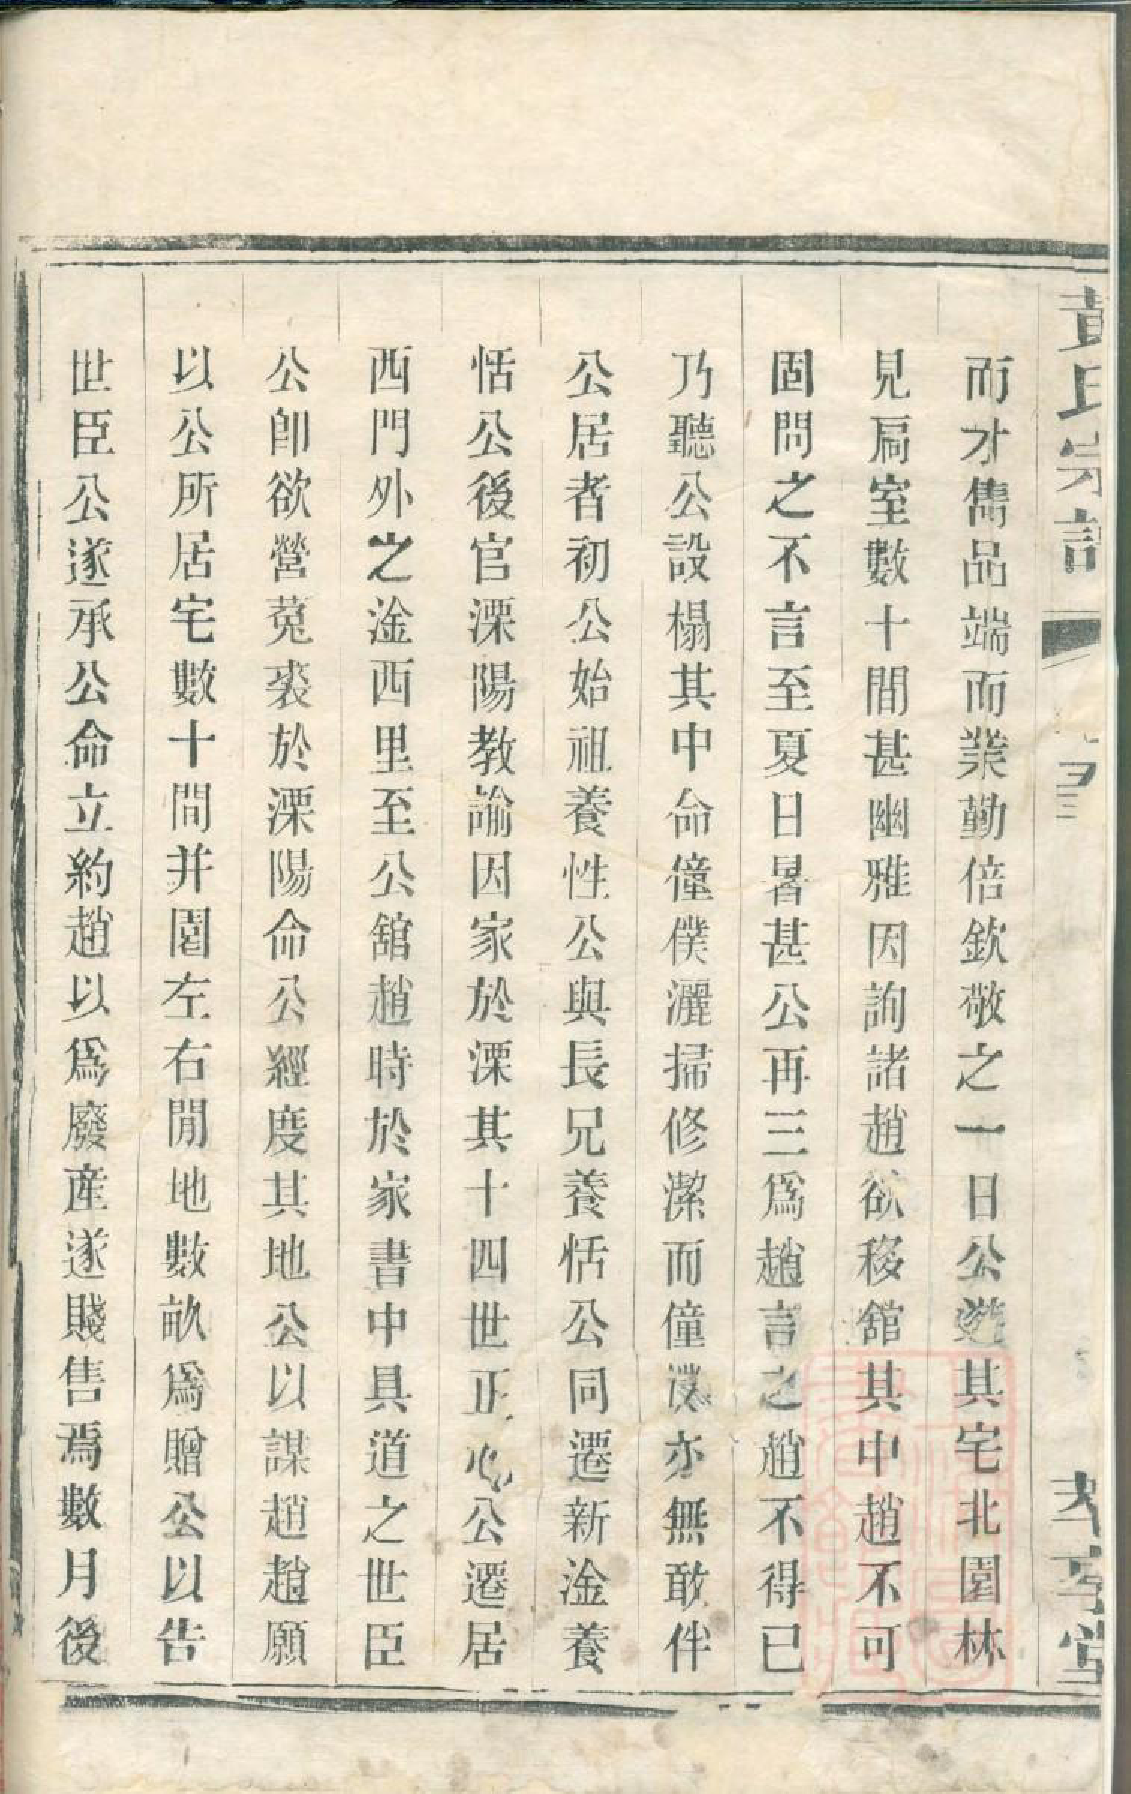 黃氏宗譜
孝享堂
而才雋品端而業勤倍欽敬之一日公遊其宅北園林
見扃室數十間甚幽雅因詢諸趙欲移舘其中趙不可
固問之不言至夏日暑甚公再三爲趙言之趙不得已
乃聽公設榻其中命僮僕灑掃修潔而僮僕亦無敢伴
公居者初公始祖養性公與長兄養恬公同遷新淦養
恬公後官溧陽教諭因家於溧其十四世正心公遷居
西門外之淦西里至公舘趙時於家書中具道之世臣
公卽欲營菟裘於溧陽命公經度其地公以謀趙趙願
以公所居宅數十間并園左右閒地數畝爲贈公以告
世臣公遂承公命立約趙以爲廢産遂賤售焉數月後